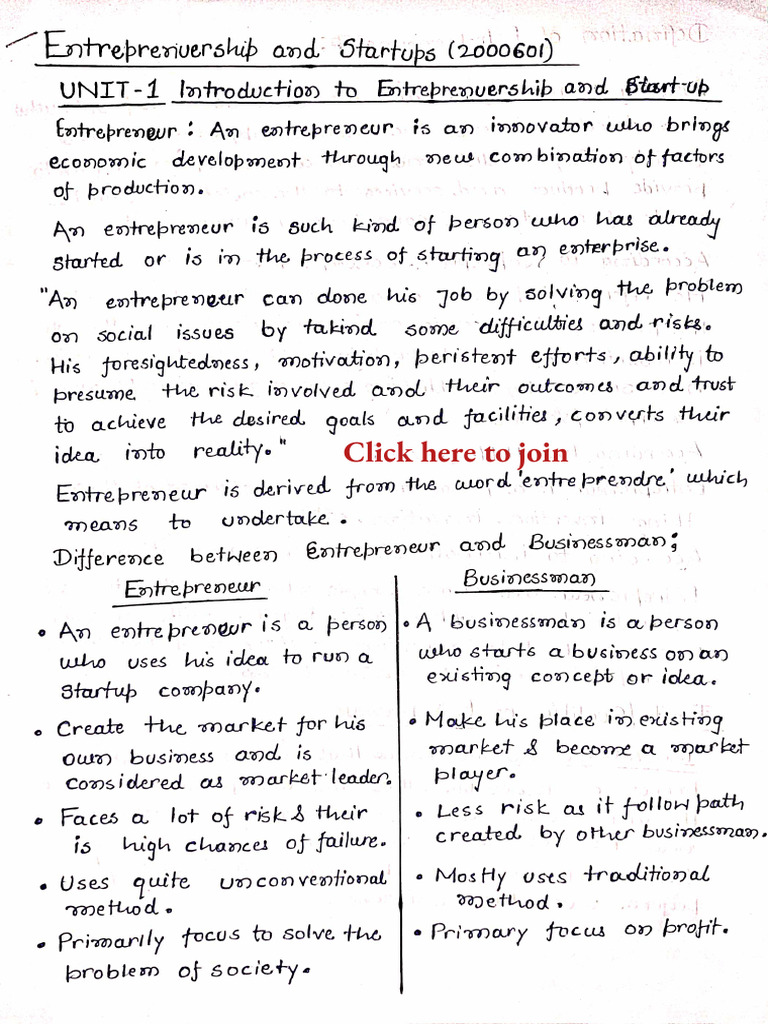 Entreprenuership and Startups (2000601)
UNIT-1 Introduction to Entreprenuership and Start-up
Entrepreneur : An entrepreneur is an innovator who brings
economic development through new combination of factors
of production.
An entrepreneur is such kind of person who has already
started or is in the process of starting an enterprise.
"An entrepreneur can done his Job by solving the problem
on social issues by takind some difficulties and risks.
His foresightedness, motivation, peristent efforts, ability to
presume the risk involved and their outcomes and trust
to achieve the desired goals and facilities, converts their
idea into reality."
Click here to join
Entrepreneur is derived from the word 'entreprendre' which
means to undertake.
Difference between Entrepreneur and Businessman;
Entrepreneur
• An entrepreneur is a person
who uses his idea to run a
startup company.
• Create the market for his
own business and is
considered as market leader.
• Faces a lot of risk & their
is high chances of failure.
• Uses quite unconventional
method.
• Primarily focus to solve the
problem of society.
Businessman
• A businessman is a person
who starts a business on an
existing concept or idea.
• Make his place in existing
market & become a market
player.
• Less risk as it follow path
created by other businessman.
• Mostly uses traditional
method.
• Primary focus on profit.